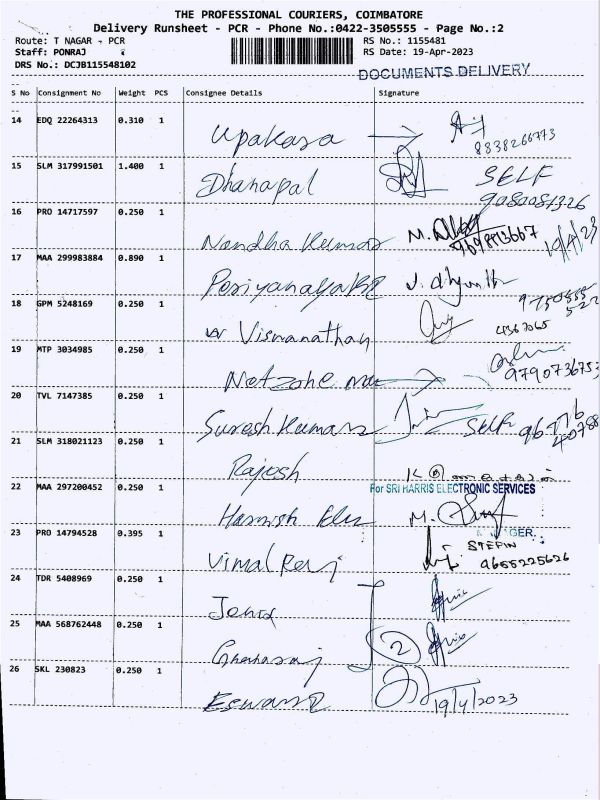 THE PROFESSIONAL COURIERS, COIMBATORE
Delivery Runsheet - PCR - Phone No.:0422-3505555 - Page No.:2
Route: T NAGAR - PCR RS No.: 1155481
Staff: PONRAJ RS Date: 19-Apr-2023
DRS No.: DCJB115548102
DOCUMENTS DELIVERY
S No Consignment No Weight PCS Consignee Details Signature
14 EDQ 22264313 0.310 1
Upakara 8838266773
15 SLM 317991501 1.400 1 SELF
Dhanapal 9080081326
16 PRO 14717597 0.250 1
Nandha Kumar M. 19/4/23
17 MAA 299983884 0.890 1
18 GPM 5248169 0.250 1
Viswanathan
19 MTP 3034985 0.250 1
9790736753
20 TVL 7147385 0.250 1
Suresh Kumar Self
21 SLM 318021123 0.250 1
Rajesh
22 MAA 297200452 0.250 1 For SRI HARRIS ELECTRONIC SERVICES
M.
23 PRO 14794528 0.395 1 STEFIN
Vimal Raj 9655225626
24 TDR 5408969 0.250 1
25 MAA 568762448 0.250 1
2
26 SKL 230823 0.250 1
19/4/2023